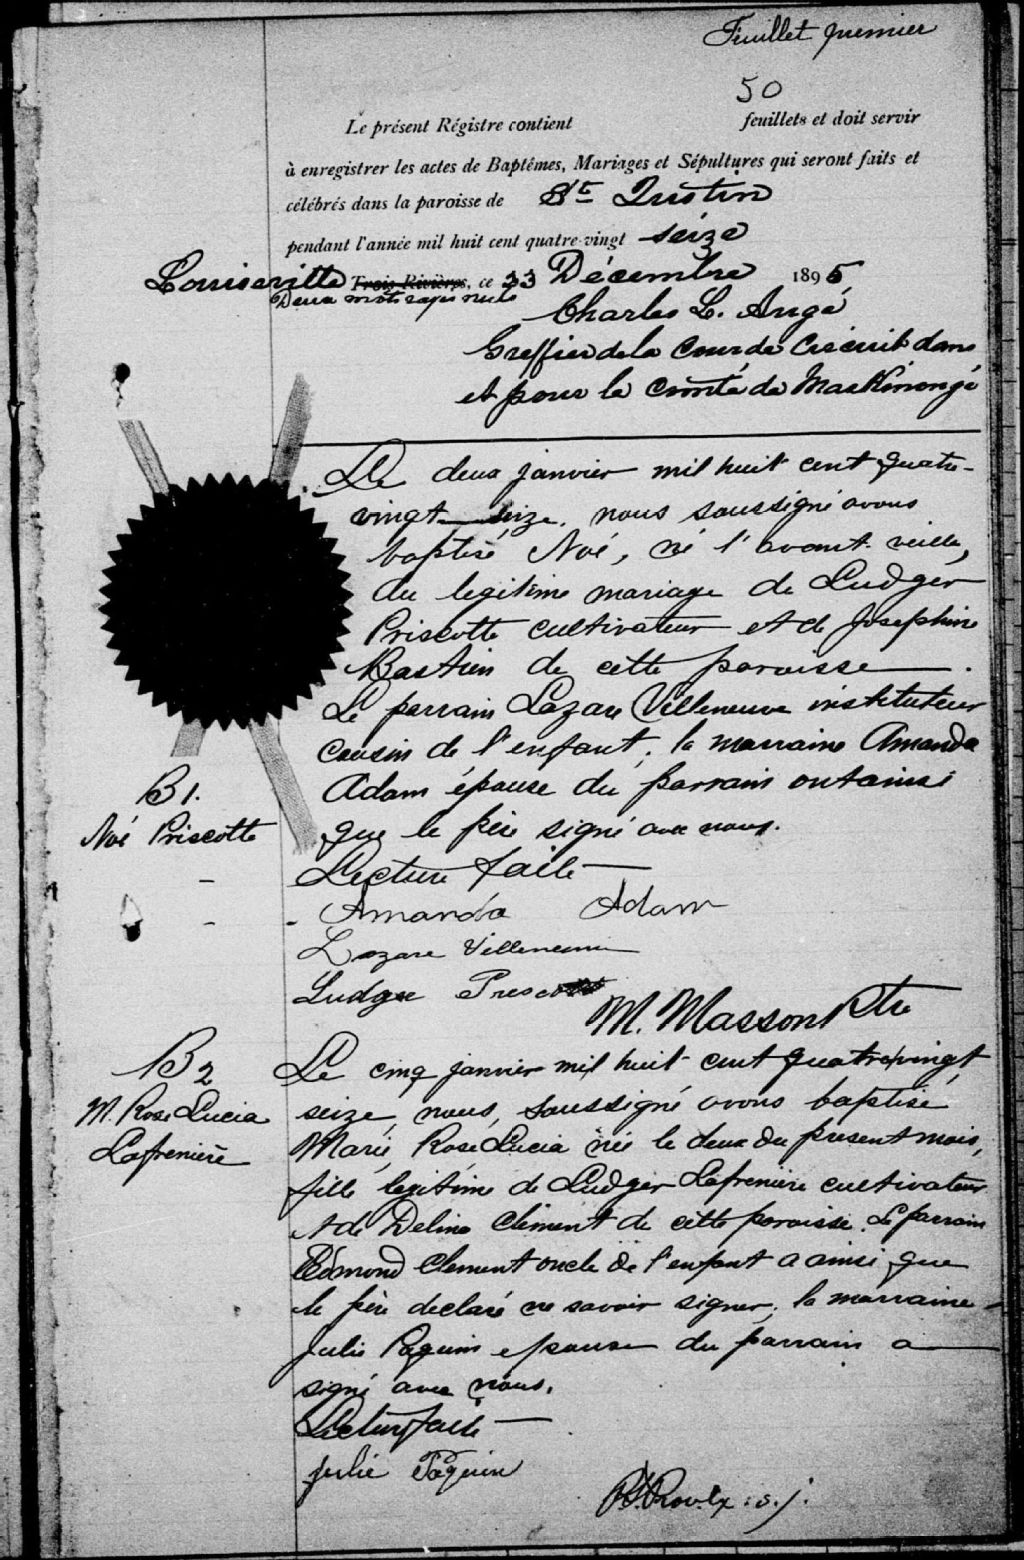 Feuillet premier
50
Le présent Régistre contient feuillets et doit servir
à enregistrer les actes de Baptêmes, Mariages et Sépultures qui seront faits et
célébrés dans la paroisse de St Justin
pendant l'année mil huit cent quatre-vingt seize
Louiseville Trois-Rivières, ce 23 Décembre 1895
Deux mots rayés nuls
Charles L. Augé
Greffier de la Cour de Circuit dans
et pour le comté de Maskinongé
Le deux janvier mil huit cent quatre-
vingt-seize, nous soussigné avons
baptisé Noé, né l'avant-veille,
du legitime mariage de Ludger
Priscotte cultivateur et de Josephine
Bastien de cette paroisse.
Le parrain Lazare Villeneuve instituteur
cousin de l'enfant, la marraine Amanda
Adam épouse du parrain ont ainsi
que le père signé avec nous.
B 1.
Noé Priscotte
Lecture faite
Amanda Adam
Lazare Villeneuve
Ludger
M. Masson Ptre
B 2
M. Rose Lucia
Lafrenière
Le cinq janvier mil huit cent quatre vingt
seize, nous, soussigné avons baptisé
Marie Rose Lucia née le deux du present mois,
fille legitime de Ludger Lafrenière cultivateur
et de Delina Clement de cette paroisse. Le parrain
Edmond Clement oncle de l'enfant a ainsi que
le père declaré ne savoir signer; la marraine
Julie Paquin epouse du parrain a
signé avec nous.
Lecture faite
Julie Paquin
Proulx s.j.